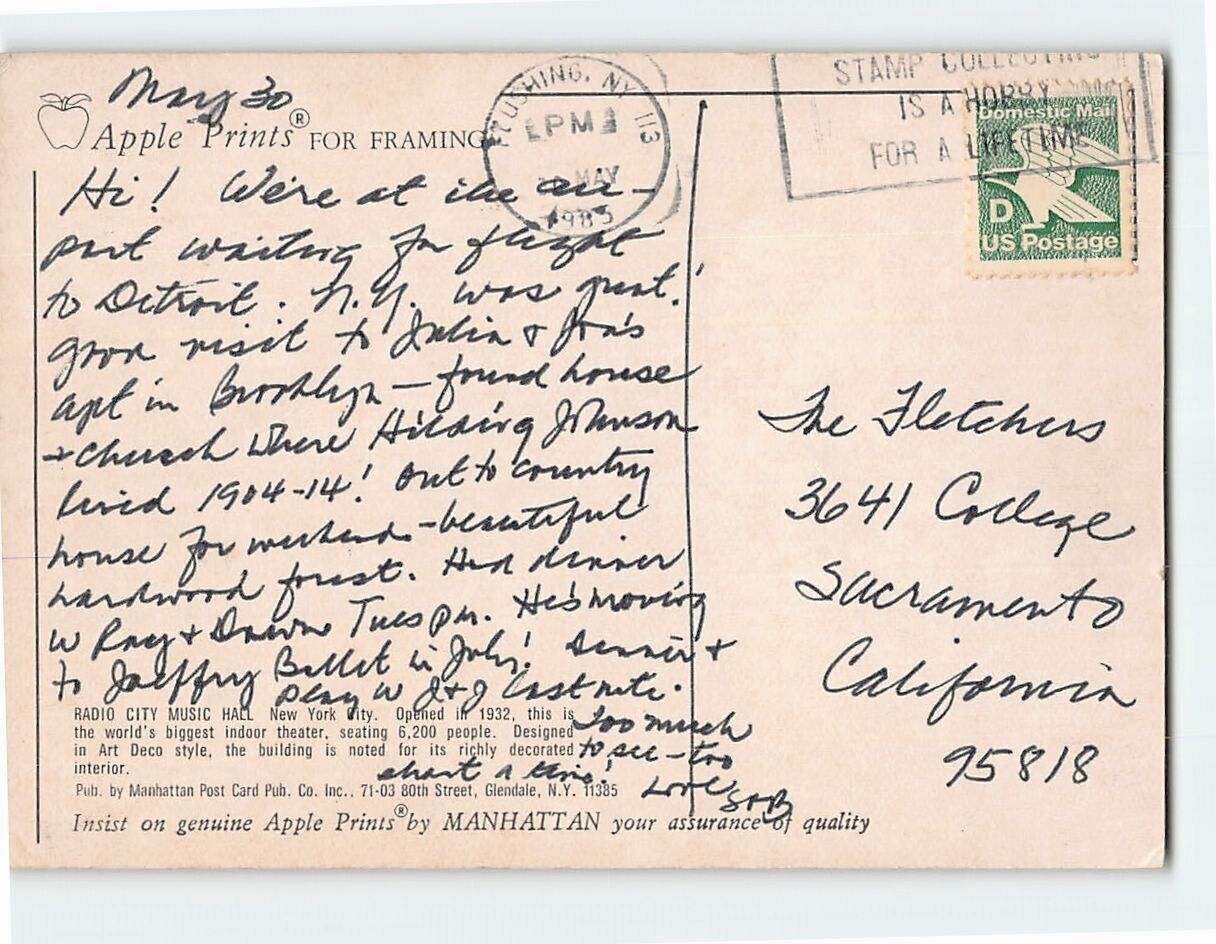 May 30
Apple Prints® FOR FRAMING
Hi! We're at the air-
port waiting for flight
to Detroit. N.Y. was great!
Good visit to Julia + Jon's
apt in Brooklyn – found house
+ church where Hilding Johnson
lived 1904-14! Out to country
house for weekend – beautiful
hardwood forest. Had dinner
w Ray + Tues pm. He's moving
to Joeffrey Ballet in July! Dinner +
play w J+J last nite.
Too much
to see – too
short a time!
Love,
S + B
RADIO CITY MUSIC HALL New York City. Opened in 1932, this is
the world's biggest indoor theater, seating 6,200 people. Designed
in Art Deco style, the building is noted for its richly decorated
interior.
Pub. by Manhattan Post Card Pub. Co. Inc., 71-03 80th Street, Glendale, N.Y. 11385
Insist on genuine Apple Prints® by MANHATTAN your assurance of quality
FLUSHING, NY 113
PM
MAY
1985
STAMP COLLECTING
IS A HOBBY
FOR A LIFETIME
Domestic Mail
D
US Postage
The Fletchers
3641 College
Sacramento
California
95818